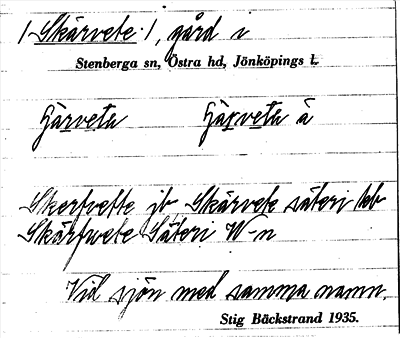 /Skärvete/, gård i
Stenberga sn, Östra hd, Jönköpings l.
Skertvette jb Skärvete säteri
Skärfwete Säteri W-n
Vid sjön med samma namn.
Stig Bäckstrand 1935.